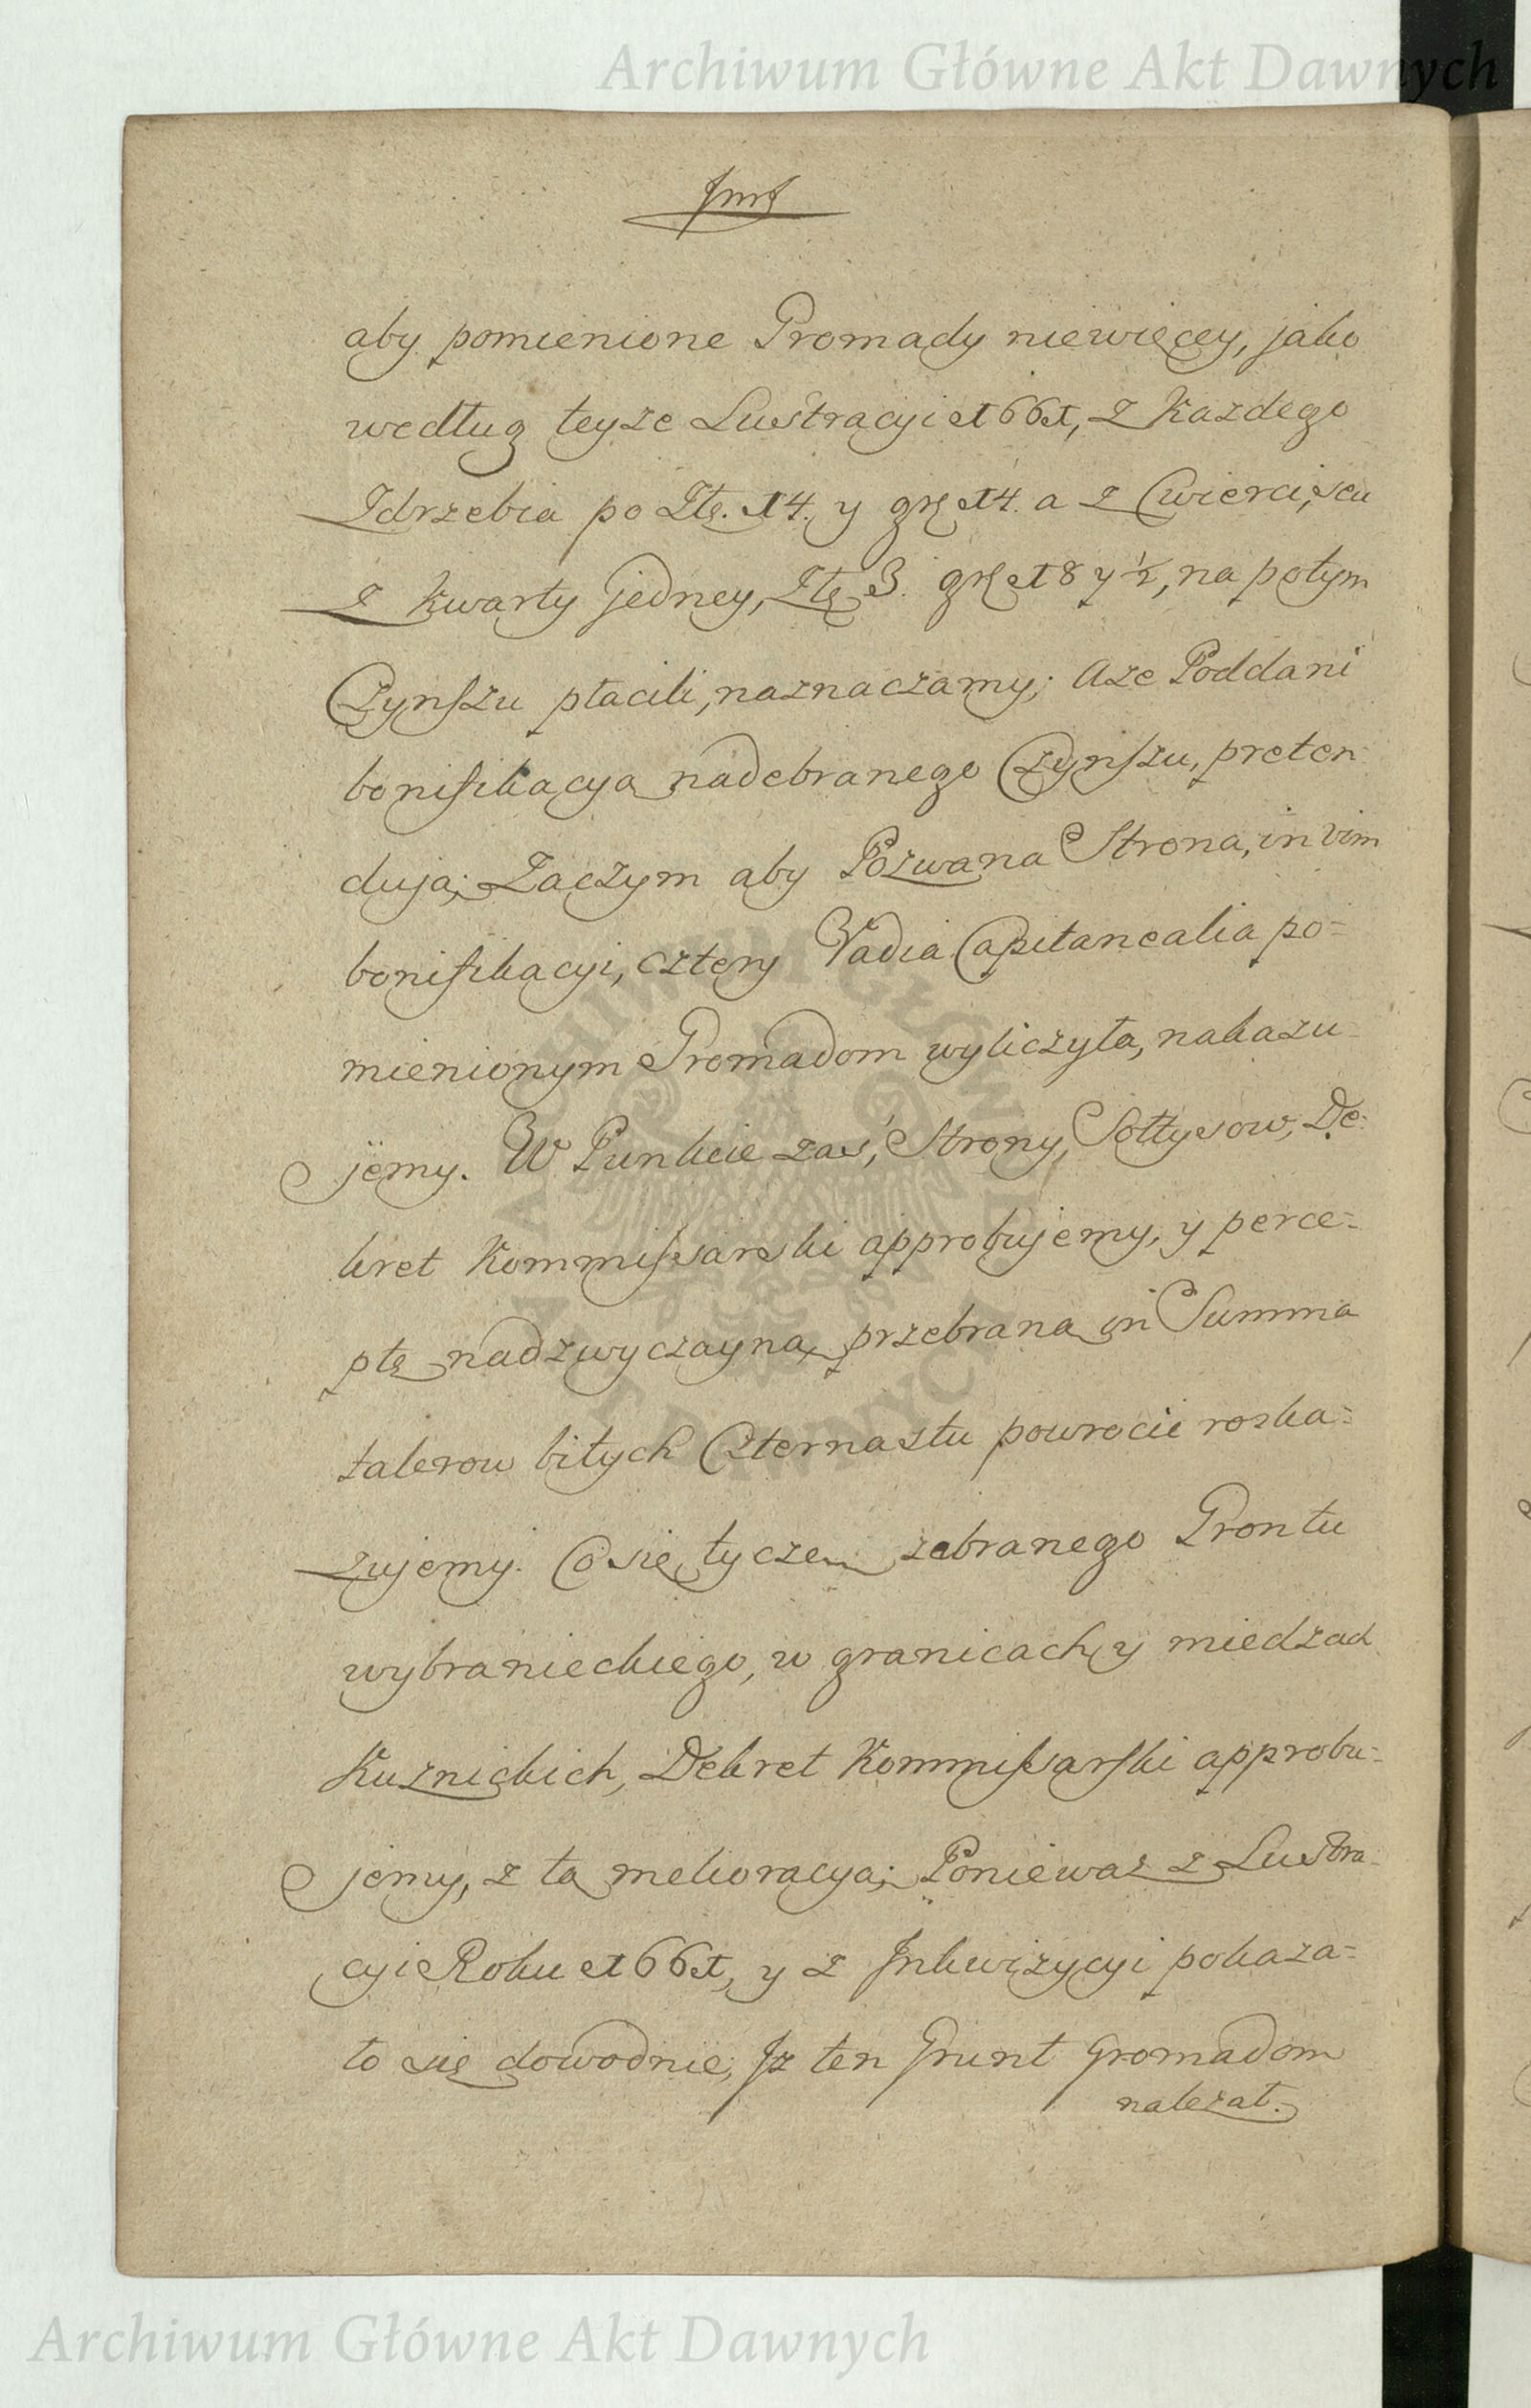 Archiwum Główne Akt Dawnych
aby pomienione Gromady niewięcey, jako
według teyze Lustracyi 1661, z Kazdego
Zdrzebia po Złł. 14. y gr 14. a z Cwierci, seu
z Kwarty jedney, Złł 3. gr 18 y ½, na potym
Czynszu płacili, naznaczamy; Aze Poddani
bonifikacyą nadebranego Czynszu, preten-
dują; Zaczym aby Pozwana Strona, in vim
bonifikacyi, cztery Vadia Capitanealia po=
mienionym Gromadom wyliczyła, nakazu-
jemy. W Punkcie zaś, Strony, Sołtysow, De=
kret Kommissarski approbujemy, y perce=
ptę nadzwyczayną, przebraną in Summa
talerow bitych Czternastu powrocic roska=
zujemy. Co się tycze zebranego Grontu
wybranieckiego, w granicach y miedzach
Kuznickich, Dekret Kommissarski approbu=
jemy, z tą melioracyą; Poniewaz z Lustra-
cyi Roku 1661, y z Inkwizycyi pokaza=
ło się dowodnie, Iz ten Grunt Gromadom
nalezał.
ARCHIWUM GŁÓWNE AKT DAWNYCH
Archiwum Główne Akt Dawnych